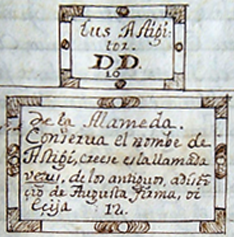 tus Astigi:
tot.
DD.
10
de la Alameda.
Conserua el nombre de
Astigi, creese es la llamada
verus, de los antiguos, a distī
çio de Augusta firma, oi
Eçija 12.